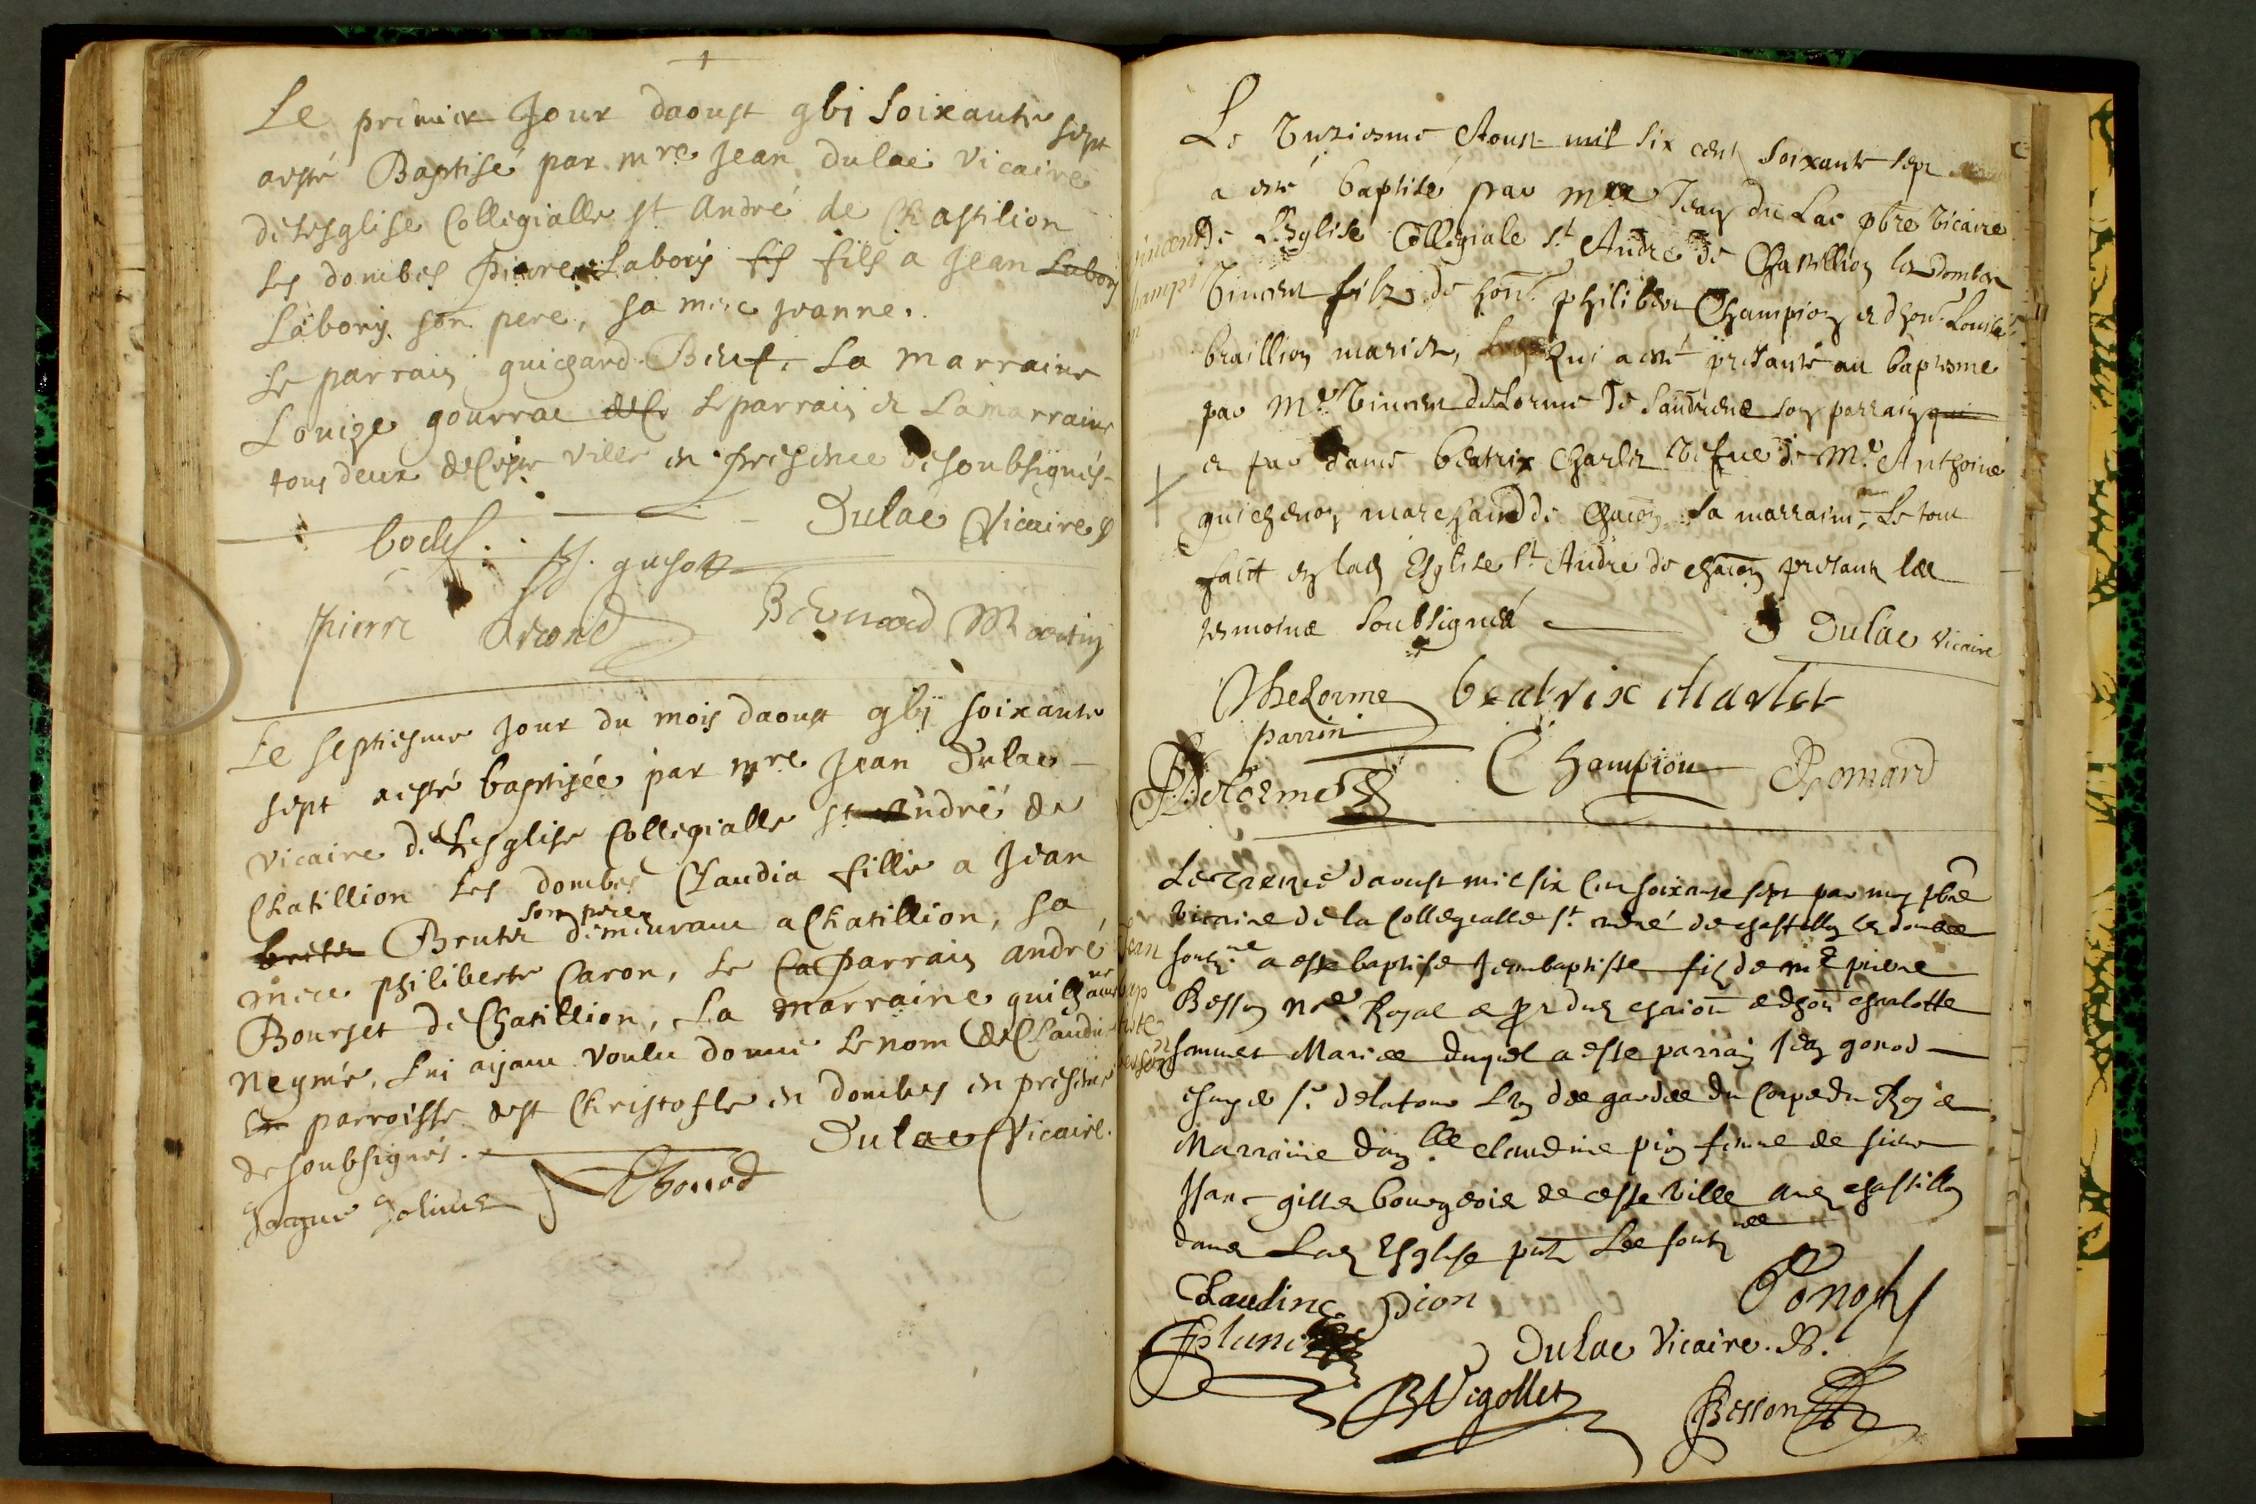 Le premier Jour daoust gbj soixante sept
aesté Baptisé par mre Jean dulac vicaire
de Lesglise Collegialle st André de Chastilion
Les dombes pierre Labory fis fils a Jean Labory
Labory son pere, sa mere jeanne.
Le parrain guichard Beuf. La marraine
Louize gourrat Le parrain et La marraine
tous deux de Ceste ville en presence de soubsignés
Dulac Vicaire
bodef. guyot
pierre Bernard Martin
Le septiesme Jour du mois daoust gbj soixante
sept aesté baptisée par mre Jean Dulac
vicaire de Lesglise Collegialle st André de
Chatillion Les dombes Claudia fillie a Jean
son pere
Brutet demeurant a Chatillion, sa
mere philiberte Caron, Le parrain andré
Bourset de Chatillion, La marraine
Neymé, Lui ajant voulu donner Le nom de Claudia
parroisse de st Christofle en dombes en presence
de soubsignés. Dulac Vicaire.
Jacque Chonod
Le unziesme Aoust mil six cent soixante sept
a esté baptisé par mre Jean du Lac pbre vicaire
de L'Eglise Collegiale st André de Chastillion les dombes
Vincent filz de hon. philibert Champion et dhon. Louise
braillion mariez, Qui a esté presanté au baptesme
par Me Vincent delorme de son parrain qui
et par dame beatrix Charlet vefue de Me Anthoine
guichenon marchand de Chaon sa marraine, Le tout
faict en lad Esglise st André de chaon presant les
tesmoins soubsignés Dulac vicaire
Delorme beatrix charlet
parrin
Delorme Champion Chomard
Le treze daoust mil six cen soixante sept par moy pbre
vicaire de la Collegialle st andré de chastillon les dombes
soubne a este baptise Jean baptiste filz de me pierre
Besson nre Royal et pr dud chaion et dhon charlotte
sommet Mariee duquel a este parrain Jean gonod
esuyer sr delatour L'un des gardes du Corps du Roy et
Marraine damlle claudine pion femme de sieur
Isaac gillet bourgeois de ceste ville aud chastillon
dans Lad Esglise pnt Les soubnes
Claudine pion Gonod
Dulac Vicaire.
B Vigollet Besson